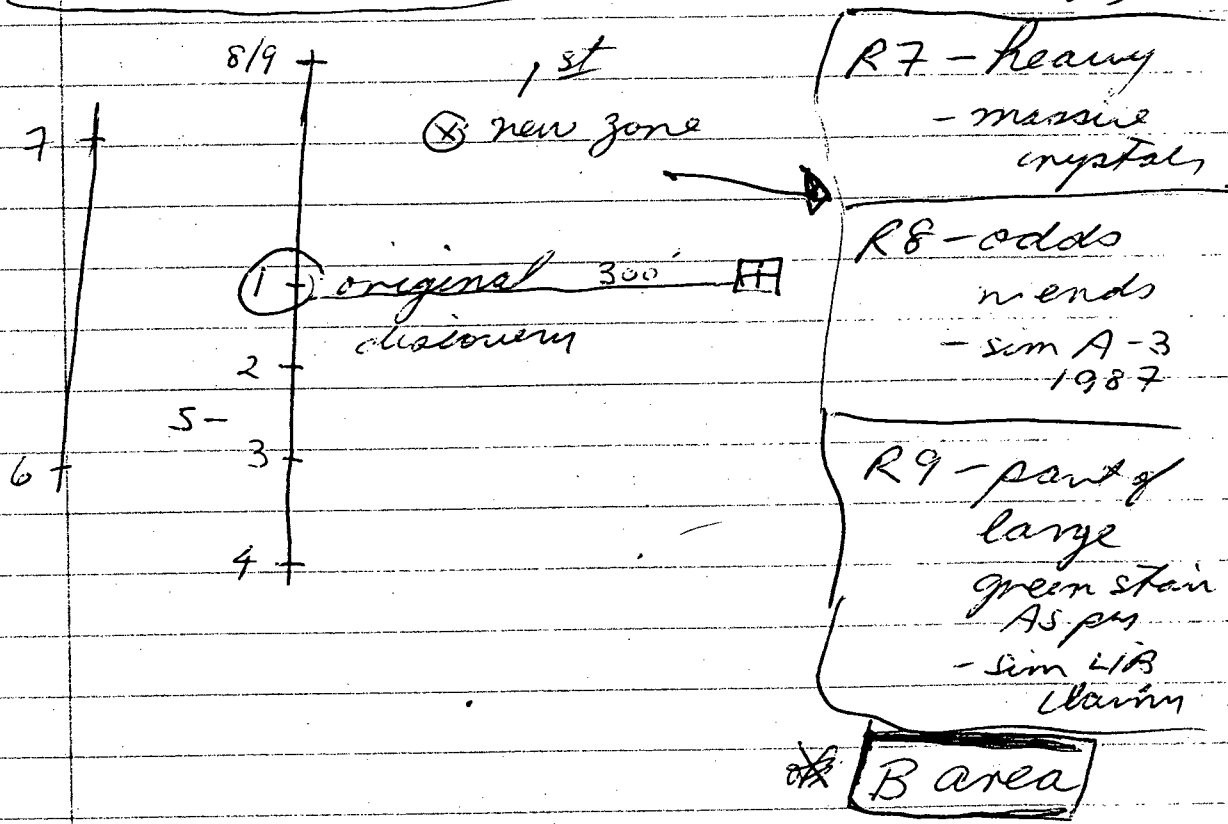 8/9
1st
7
⊗ new zone
1 original 300'
discovery
2
5-
3
6
4
R7 - heavy
- massive
crystals
R8 - odds
n ends
- sim A-3
1987
R9 - part of
large
green stain
As py
- sim LIB
B area